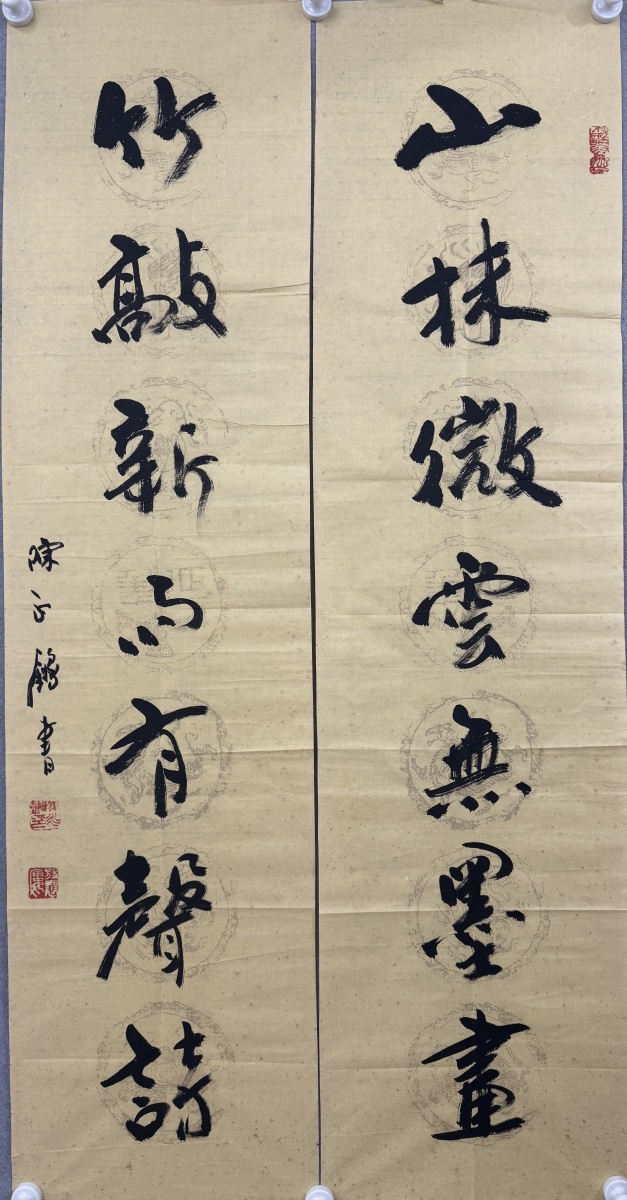 山抹微雲無墨畫
竹敲新雨有聲詩
陳 書